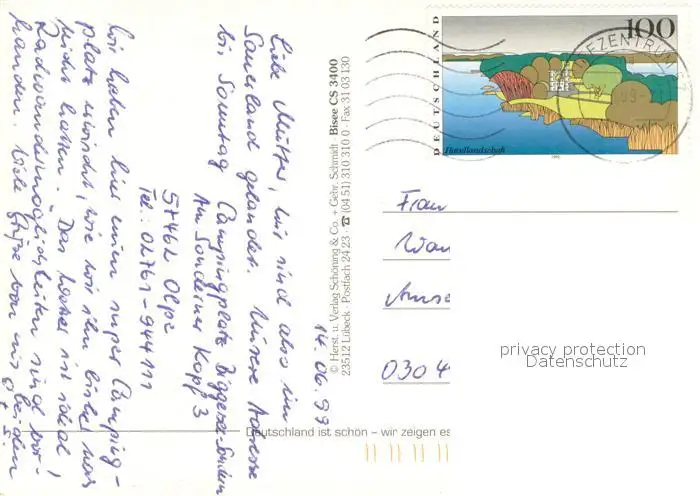 14.06.99
Liebe Mutter, wir sind also im
Sauerland gelandet. Unsere Adresse
bis Sonntag Campingplatz Biggesee-Sondern
Am Sonderner Kopf 3
57462 Olpe
Tel.: 02761-944111
Wir haben hier einen super Camping-
platz erwischt, wie wir ihn bisher noch
nicht hatten. Das Wetter ist ideal,
Radwandermöglichkeiten sind vor-
handen. Viele Grüße von uns beiden
© Herst. u. Verlag Schöning & Co. + Gebr. Schmidt · Bisee CS 3400
23512 Lübeck · Postfach 24 23 · ☎ (04 51) 310 310 0 · Fax 31 03 130
DEUTSCHLAND
100
Havellandschaft
EZENTRUM
Frau
030 4
privacy protection
Datenschutz
Deutschland ist schön – wir zeigen es